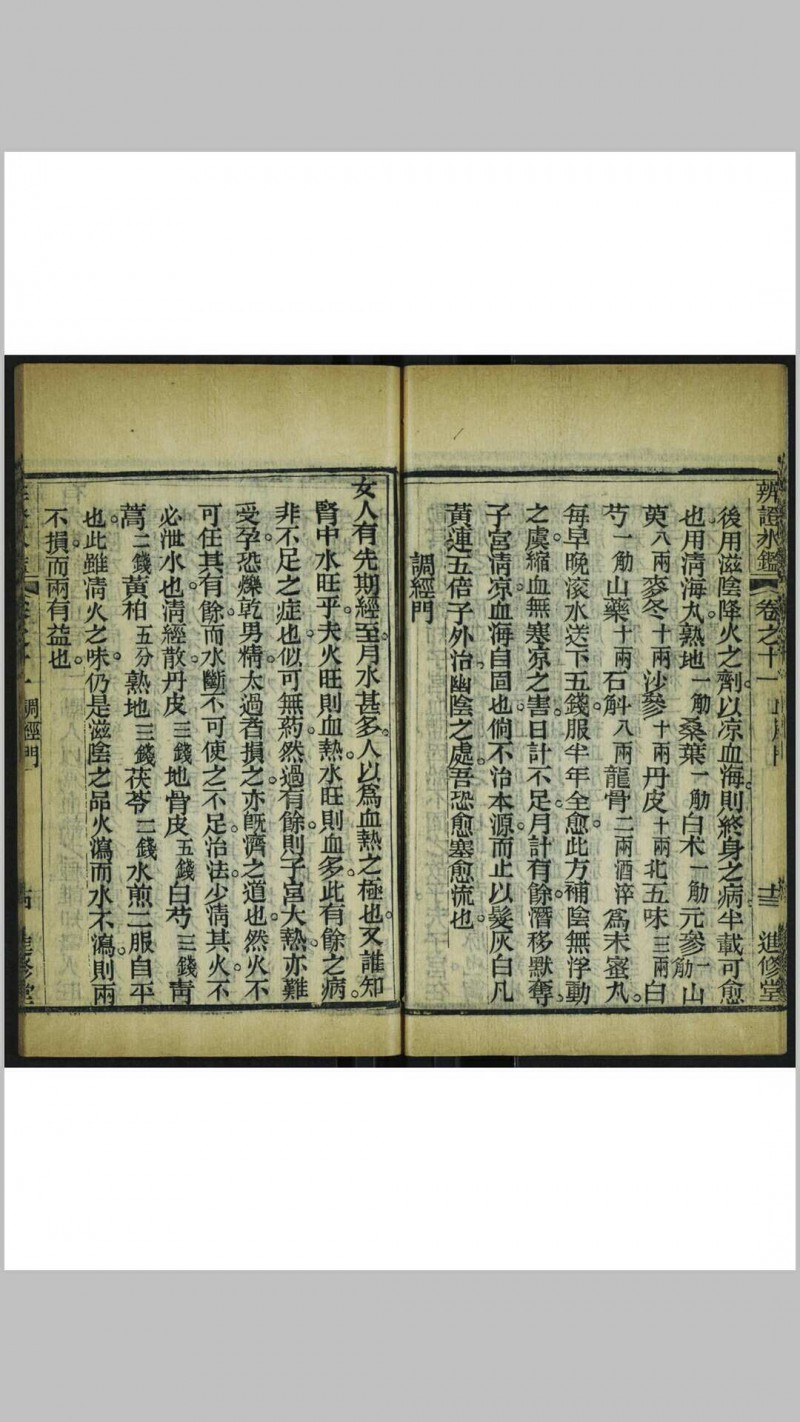 辨證氷鑑 卷之十一 進修堂
後用滋陰降火之劑以凉血海則終身之病半載可愈
也用淸海丸熟地一觔桑葉一觔白术一觔元參一觔山
萸八兩麥冬十兩沙參十兩丹皮十兩北五味三兩白
芍一觔山藥十兩石斛八兩龍骨二兩酒淬爲末蜜丸
每早晚滾水送下五錢服半年全愈此方補陰無浮動
之虞縮血無寒凉之害日計不足月計有餘潛移默奪
子宮淸凉血海自固也倘不治本源而止以髮灰白凡
黃連五倍子外治幽陰之處吾恐愈塞愈流也
調經門
女人有先期經至月水甚多人以爲血熱之極也又誰知
腎中水旺乎夫火旺則血熱水旺則血多此有餘之病
非不足之症也似可無藥然過有餘則子宮大熱亦難
受孕恐爍乾男精太過者損之亦旣濟之道也然火不
可任其有餘而水斷不可使之不足治法少淸其火不
必泄水也淸經散丹皮三錢地骨皮五錢白芍三錢靑
蒿二錢黃柏五分熟地三錢茯苓二錢水煎二服自平
也此雖淸火之味仍是滋陰之品火瀉而水不瀉則兩
不損而兩有益也
調經門